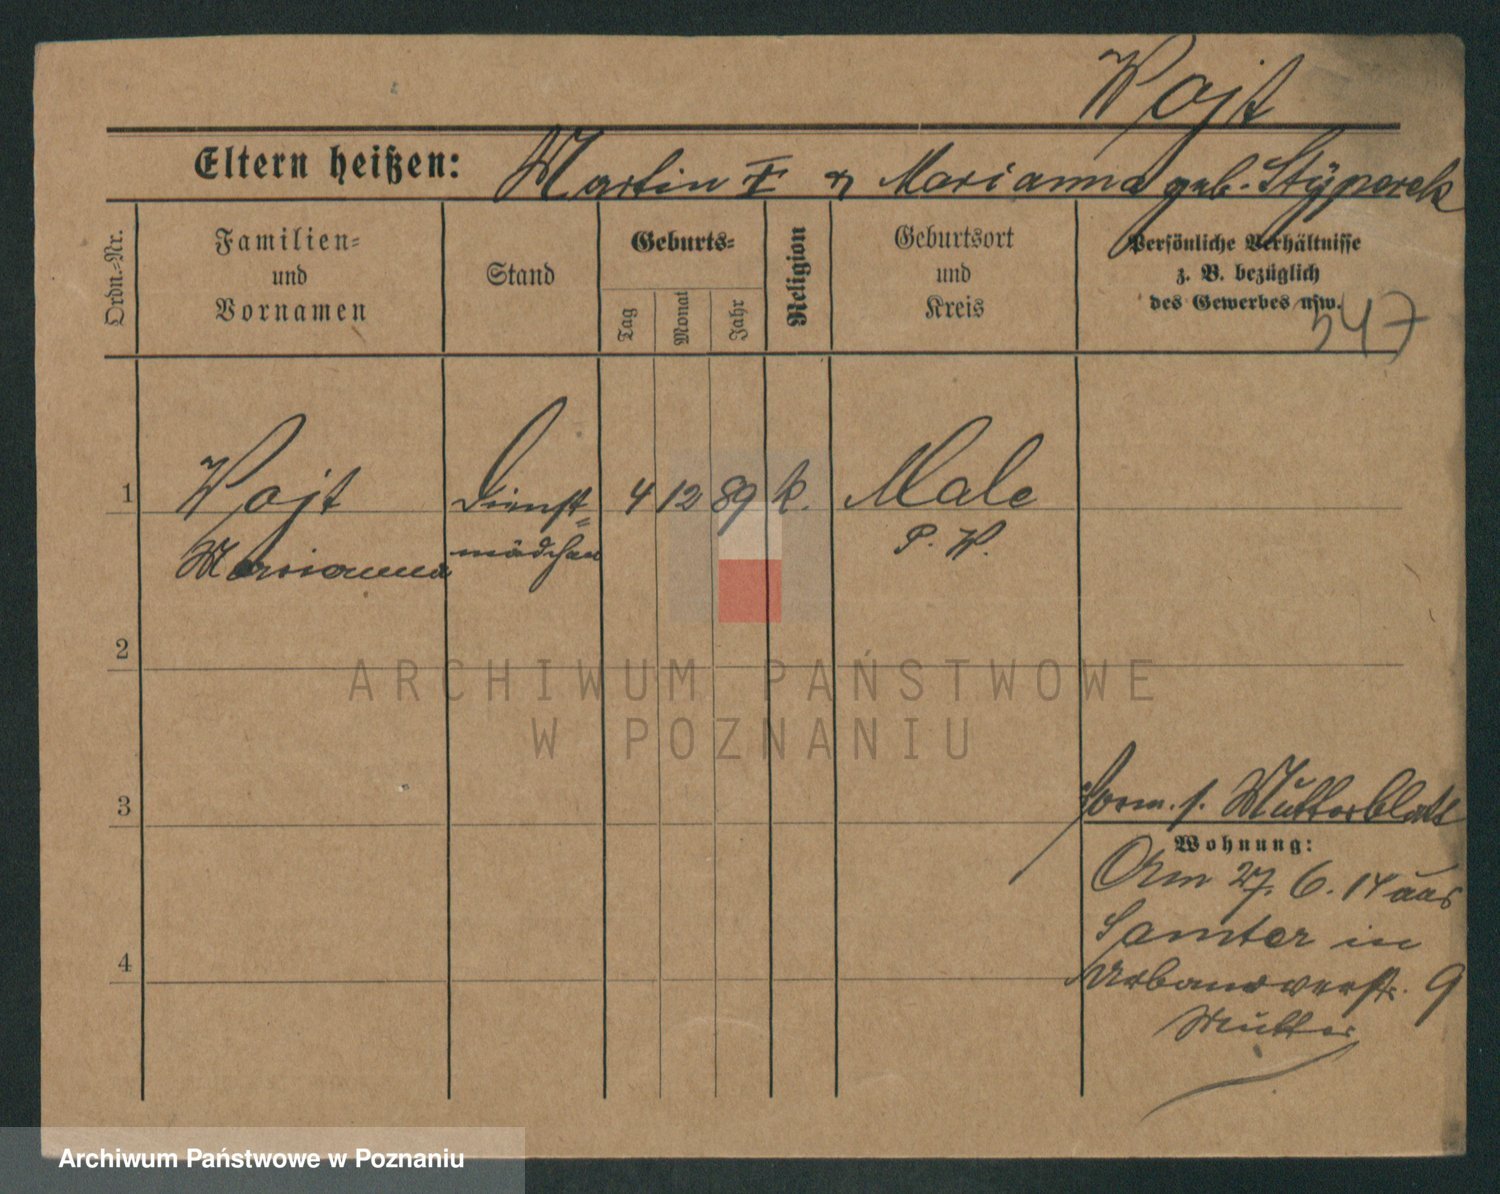 Wojt
Eltern heißen: Martin I u Marianna geb. Styperek
Ordn.-Nr.
Familien-
und
Vornamen
Stand
Geburts-
Tag
Monat
Jahr
Religion
Geburtsort
und
Kreis
Persönliche Verhältnisse
z. B. bezüglich
des Gewerbes usw.
547
1 Wojt Dienst= 4 12 89 k. Male
Marianna mädchen P. W.
2
ARCHIWUM PAŃSTWOWE
W POZNANIU
3
s. Mutterblatt
Wohnung:
Am 27. 6. 14 aus
Samter in
9
Mutter
4
Archiwum Państwowe w Poznaniu